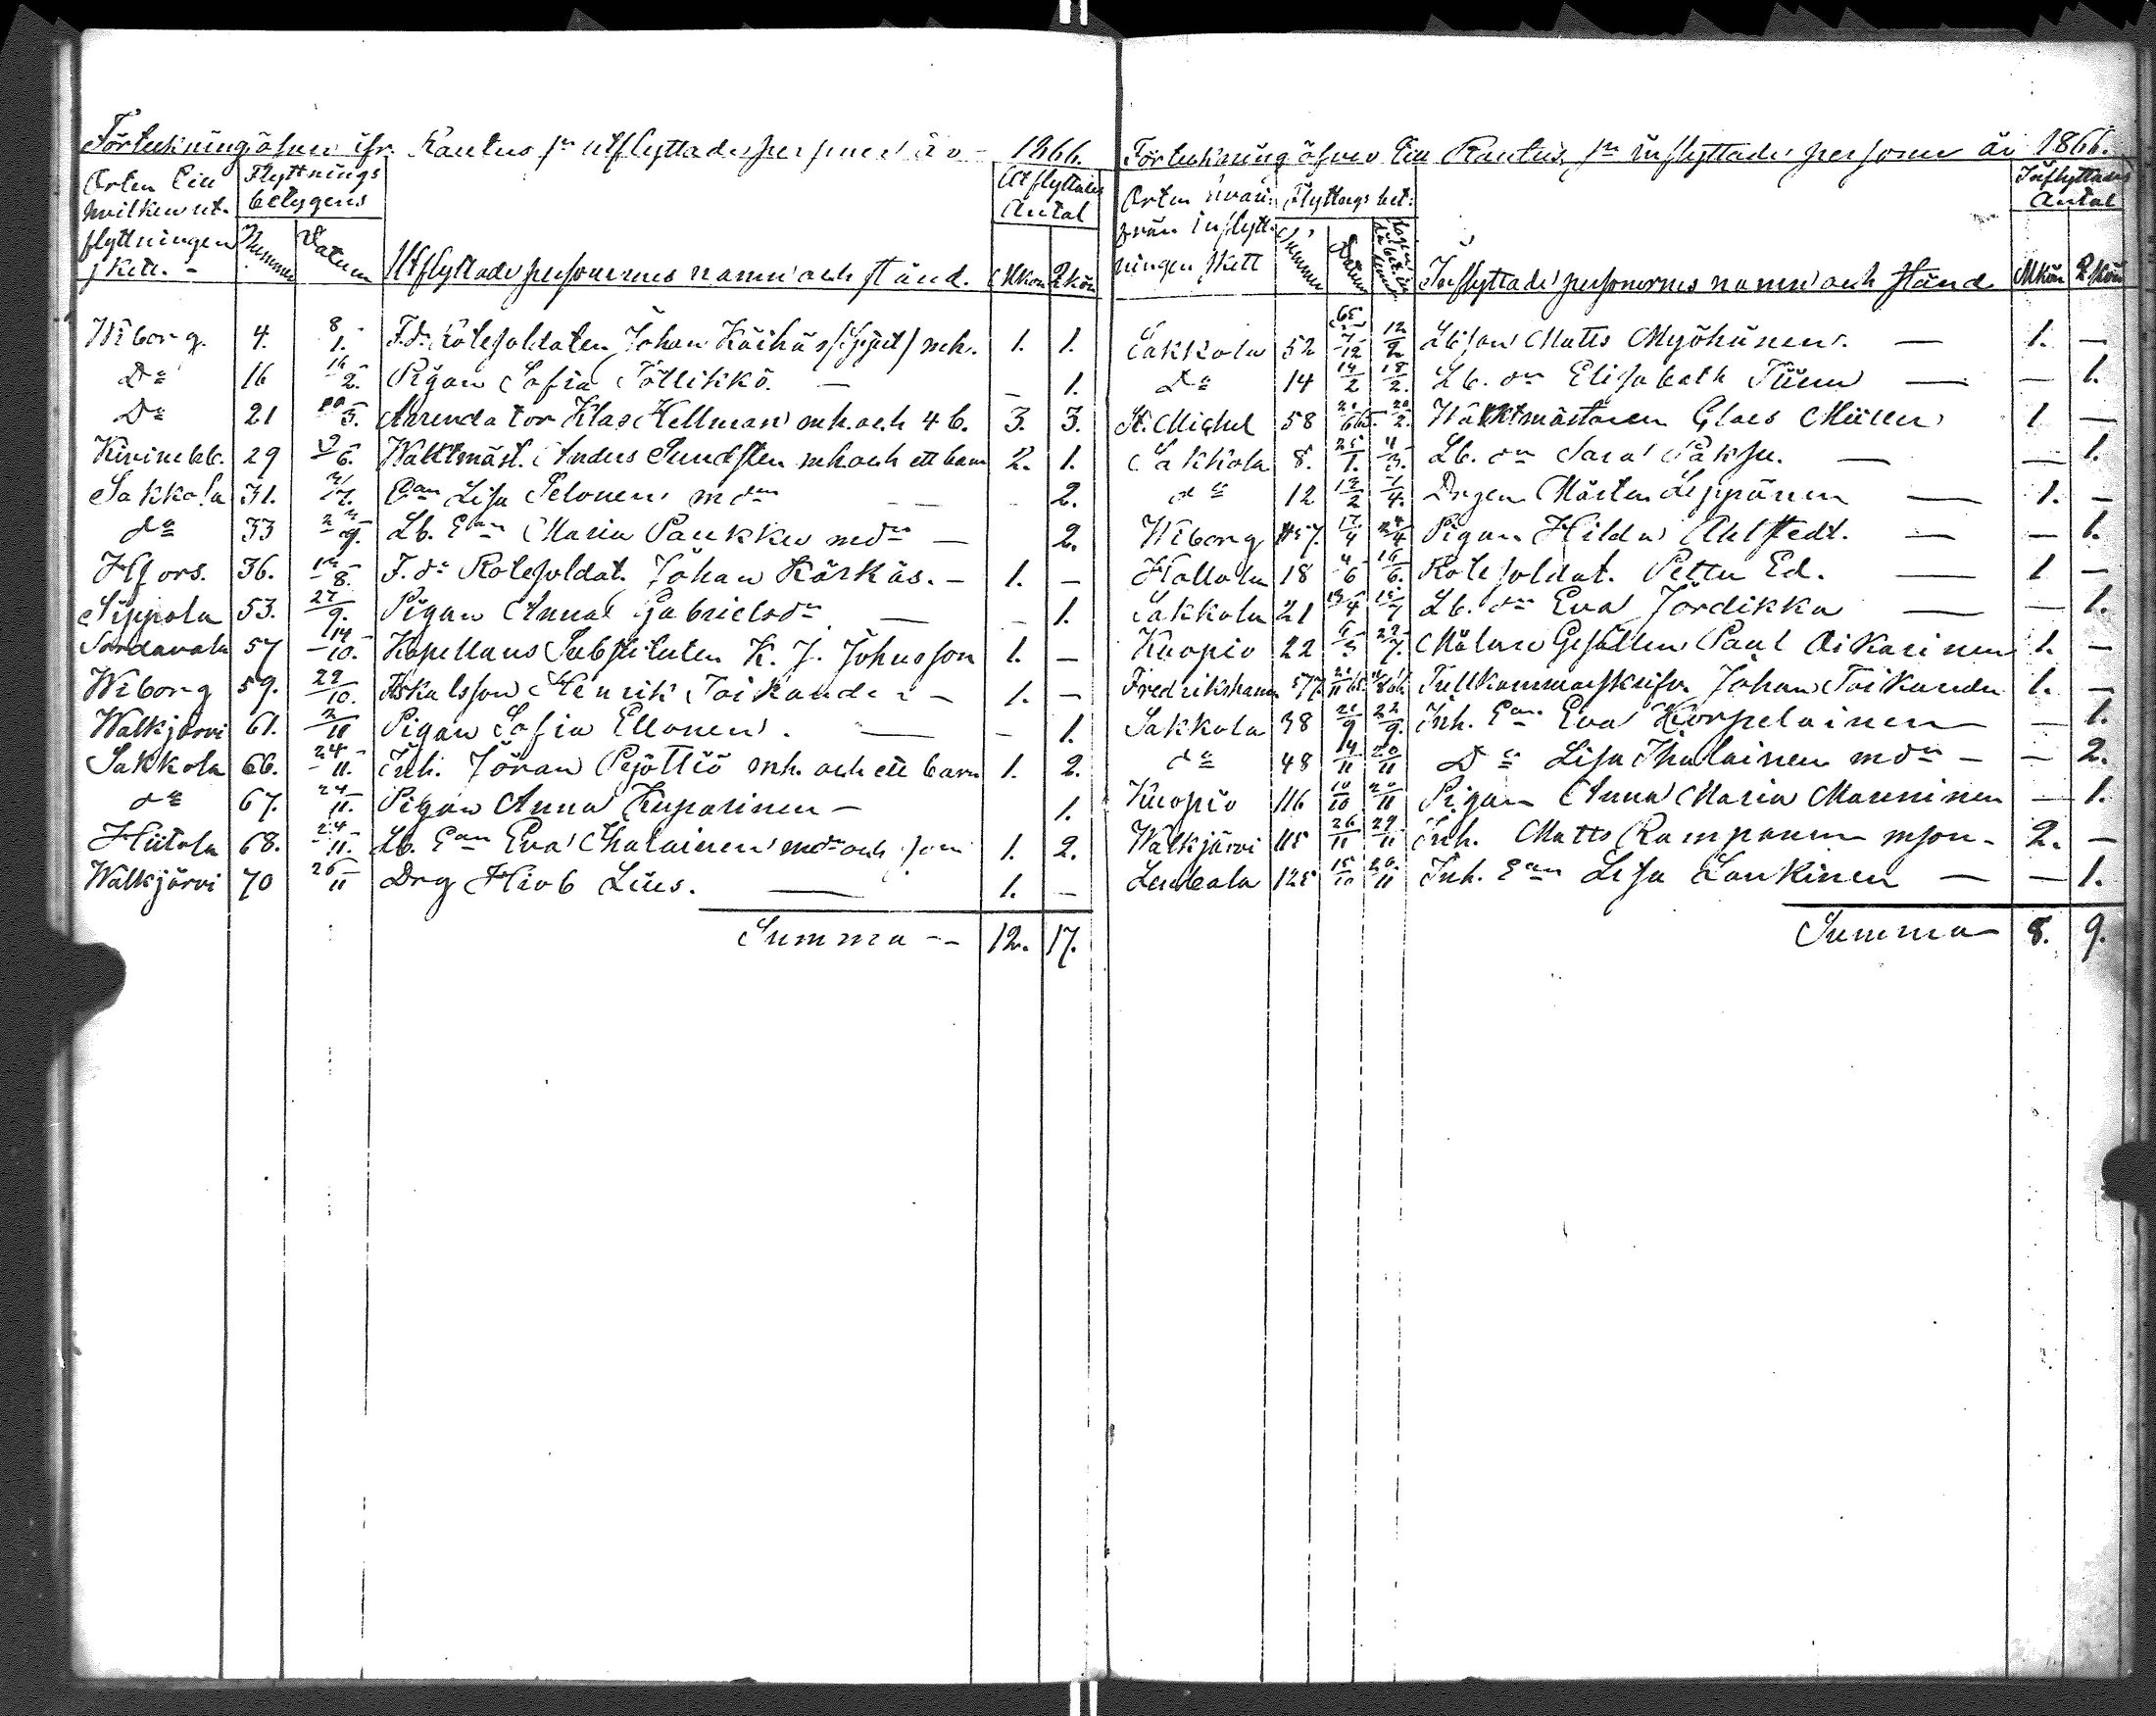 Förteckning öfver ifr. Rautus sn utflyttade personer år 1866.
Orten till hvilken utflyttningen skett. - Flyttnings betygens Nummer Datum Utflyttade personernes namn och stånd. Utflyttades Antal Mkön Qkön
Wiborg. 4. 8/1. F.d. Rotesoldaten Johan mh. 1. 1.
Do 16 16/2. Pigan Sofia Töllikkö. — — 1.
Do 21 /3. Arrendator Klas Hellman mh. och 4 b. 3. 3.
Kivinebb. 29 9/6. Waktmäst. Anders Sundsten mh och ett barn 2. 1.
Sakkola 31. /7. Ean Lisa Pelonen m dr — — 2.
do 33 Lb. Ean Maria Paukku mdr — 2.
Hfors. 36. /8. F.d. Rotesoldat. Johan Kärkäs. — 1. —
Sippola 53. 27/9. Pigan Anna Gabrielsdr — — 1.
Sordavala 57 14/10. Kapellans Substituten K. J. Johnsson 1. —
Wiborg 59. 22/10. Henrik Toikander — 1. —
Walkjärvi 61. 2/11 Pigan Sofia Ellonen. — — 1.
Sakkola 66. 24/11. Inh. Jöran Pyöttiö mh. och ett barn 1. 2.
do 67. 24/11. Pigan Anna Kuparinen — 1.
Hiitola 68. 24/11. Lb. Ean Eva Ihalainen mdr och son 1. 2.
Walkjärvi 70 26/11 Drg Hiob Lius. — 1. —
Summa -- 12. 17.
Förteckning öfver till Rautus sn inflyttade personer år 1866.
Orten hvarifrån inflyttningen skett Flyttngs bet: Nummer Datum Inflyttade personernes namn och stånd Inflyttades Antal Mkön Qkön
Sakkola 52 65 7/12 12/2 Lb son Matts Myöhänen. — 1. —
Do 14 14/2 18/2. Lb. dr Elisabeth Tiien — — 1.
St. Michel 58 20/2. Waktmästaren Claes Müller 1 —
Sakkola 8. 25/1. 4/3. Lb. dr Sara Päksu. — — 1.
do 12 12/2 1/4. Drgen Mårten Leppänen — 1. —
Wiborg 17/4 24/4 Pigan Hilda Ahlstedt. — — 1.
Hollola 18 4/6 16/6. Rotesoldat. Petter Ed. — 1 —
Sakkola 21 13/4 15/7 Lb. dr Eva Jordikka — — 1.
Kuopio 22 22/7. Målare Gesällen Paul Aikarinen 1. —
Fredrikshamn 577. Tullkammarskrifv. Johan Toikander 1. —
Sakkola 38 21/9 22/9. Inh. Ean Eva Korpelainen — — 1.
do 48 14/11 20/11 Do Lisa Ihalainen mdr — — 2.
Kuopio 116 10/10 /11 Pigan Anna Maria Manninen — 1.
Walkjärvi 115 26/11 29/11 Inh. Matts Rampanen mson. 2. —
Lembala 125 15/10 26/11 Inh. Ean Lisa Laukinen — — 1.
Summa 8. 9.